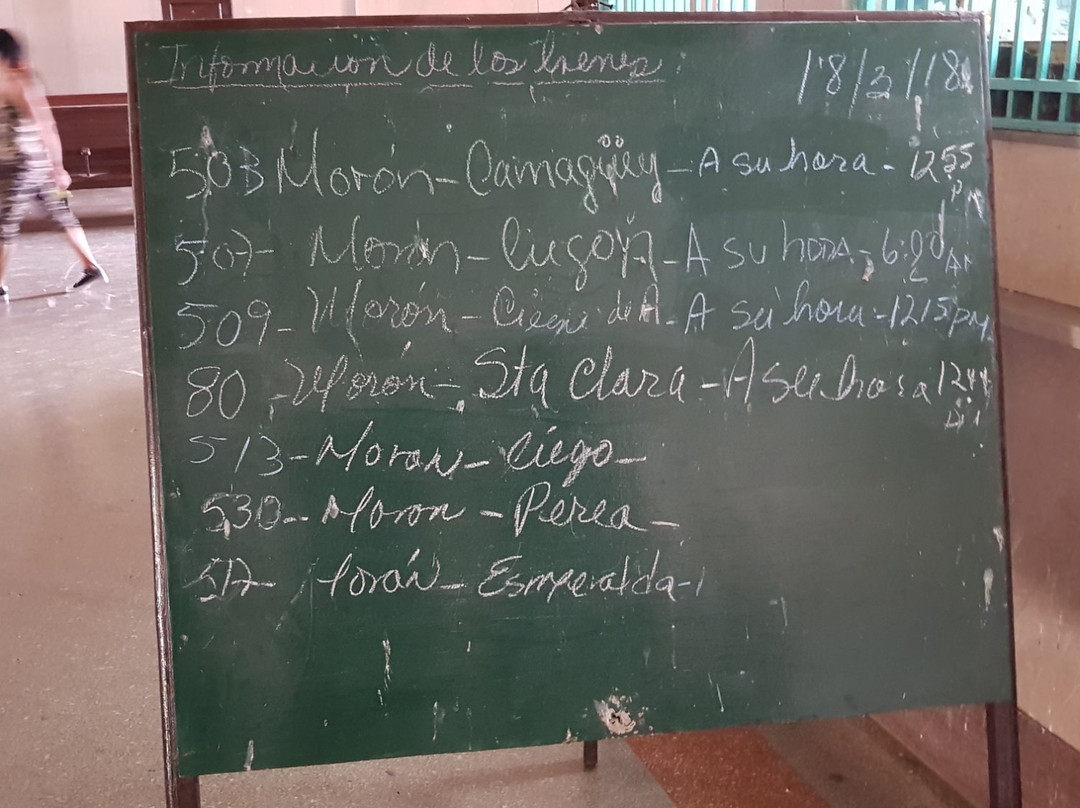 Información de los trenes 18/3/18
503 Morón - Camagüey - A su hora - 1255 pm
507 - Morón - - A su hora - AM
509 - Morón - Ciego de A. - A su hora - 1215 pm
80 - Morón - Sta Clara - A su hora
513 - Moron - Ciego -
530 - Moron - Perea -
Esmeralda -